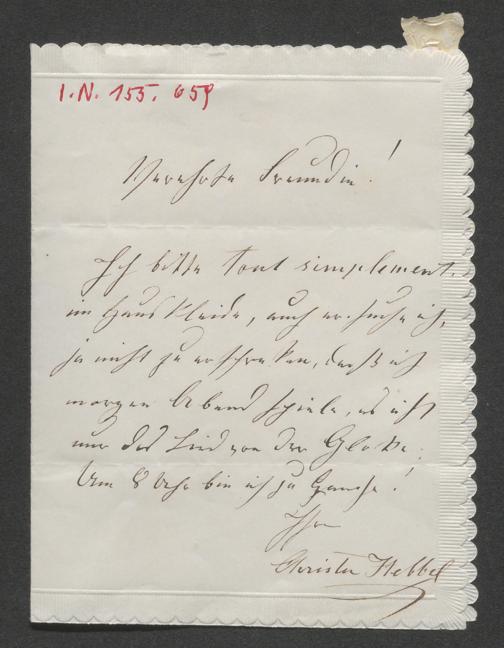 I.N. 155.059
Verehrte Freundin!
Ich bitte tout simplement
im Hauskleide, auch ersuche ich,
ja nicht zu erschrecken, daß ich
morgen Abend spiele, es ist
nur das Lied von der Glocke;
Um 8 Uhr bin ich zu Hause!
Ihre
Christine Hebbel